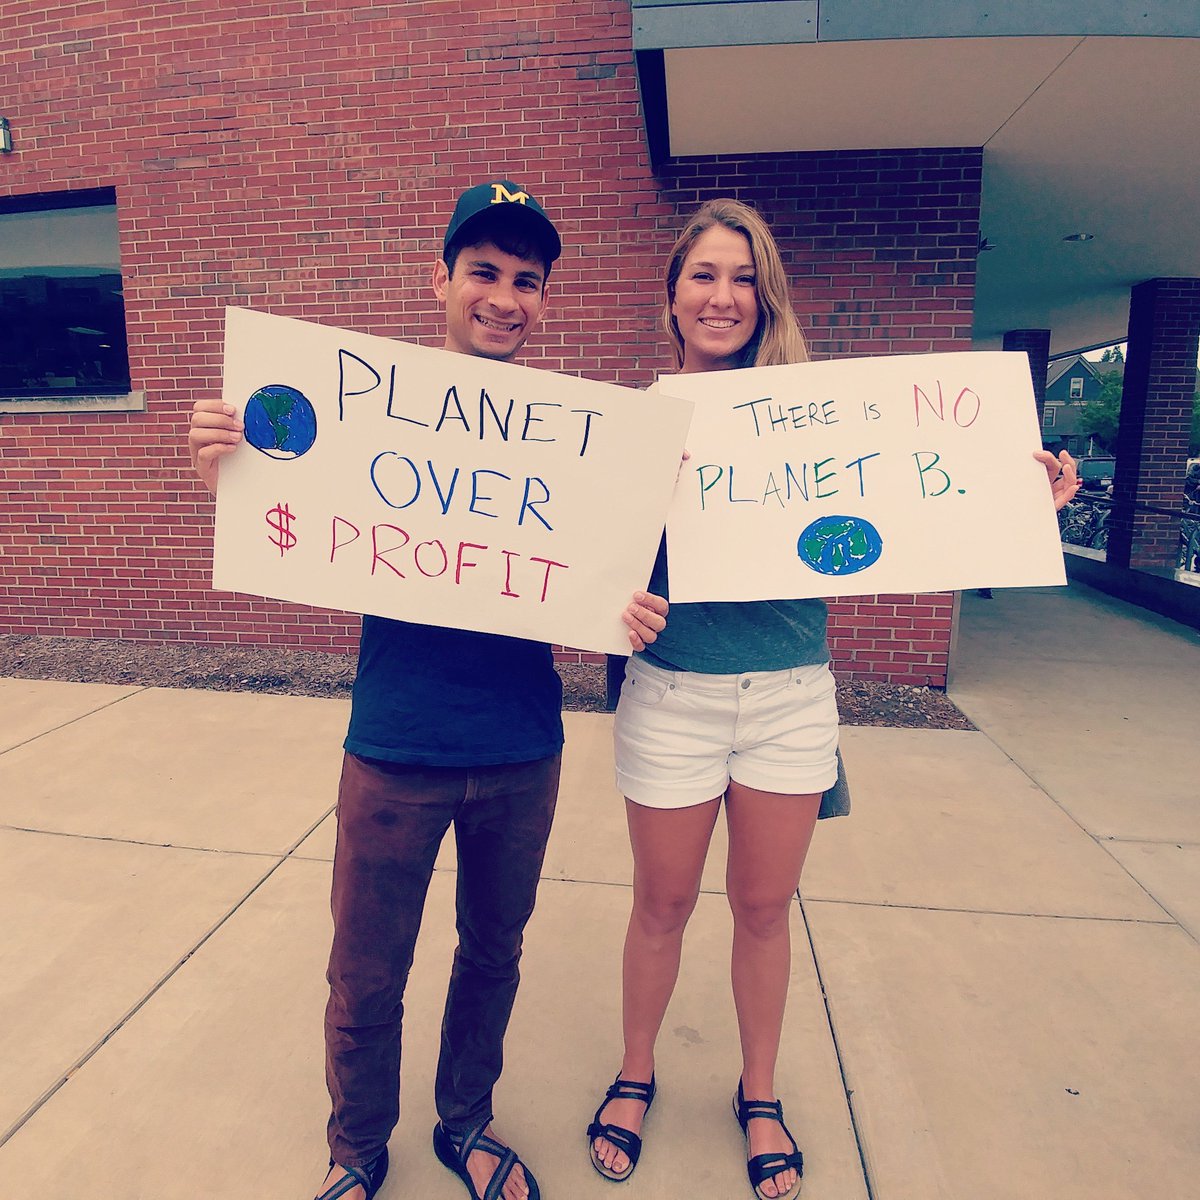 M
PLANET
OVER
$ PROFIT
THERE IS NO
PLANET B.